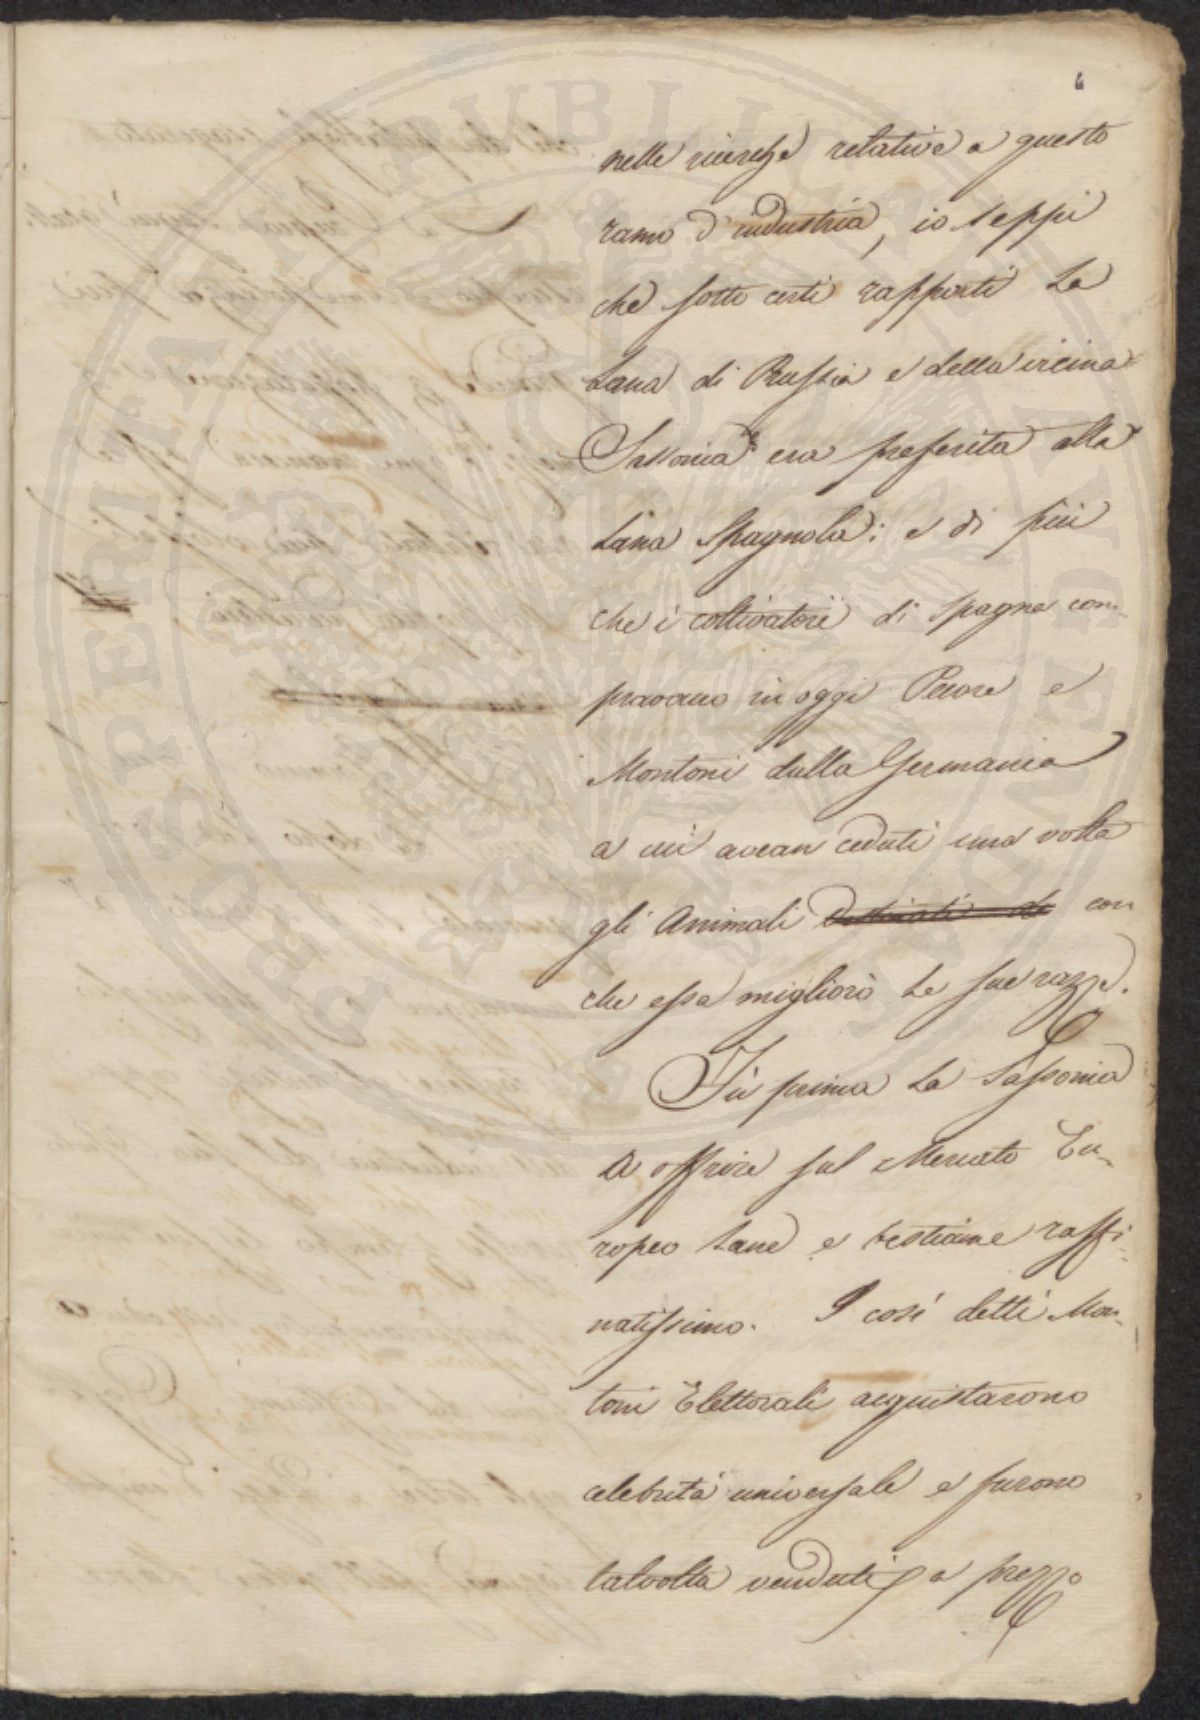 6
nelle ricerche relative a questo
ramo d'industria, io seppi
che sotto certi rapporti la
Lana di Prussia e della vicina
Sassonia era preferita alla
Lana Spagnola: e di più
che i coltivatori di Spagna com-
pravano in oggi Pecore e
Montoni dalla Germania
a cui avean ceduti una volta
gli Animali destinati da con
che essa migliorò le sue razze.
Fù prima la Sassonia
a offrire sul Mercato Eu-
ropeo Lane e bestiame raffi-
natissimo. I così detti Mon-
toni Elettorali acquistarono
celebrità universale e furono
talvolta venduti a prezzo
PROSPERITATI PUBLICAE AUGENDAE